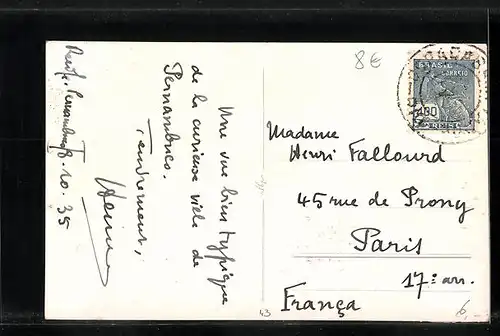 8€
BRASIL CORREIO
400
REIS
Recife, Pernambuco 8.10.35
Une vue bien typique
de la curieuse ville de
Pernambuco.
Tendrement,
Henri
Madame
Henri Fallourd
45 rue de Prony
Paris
17e arr.
França
43
6,